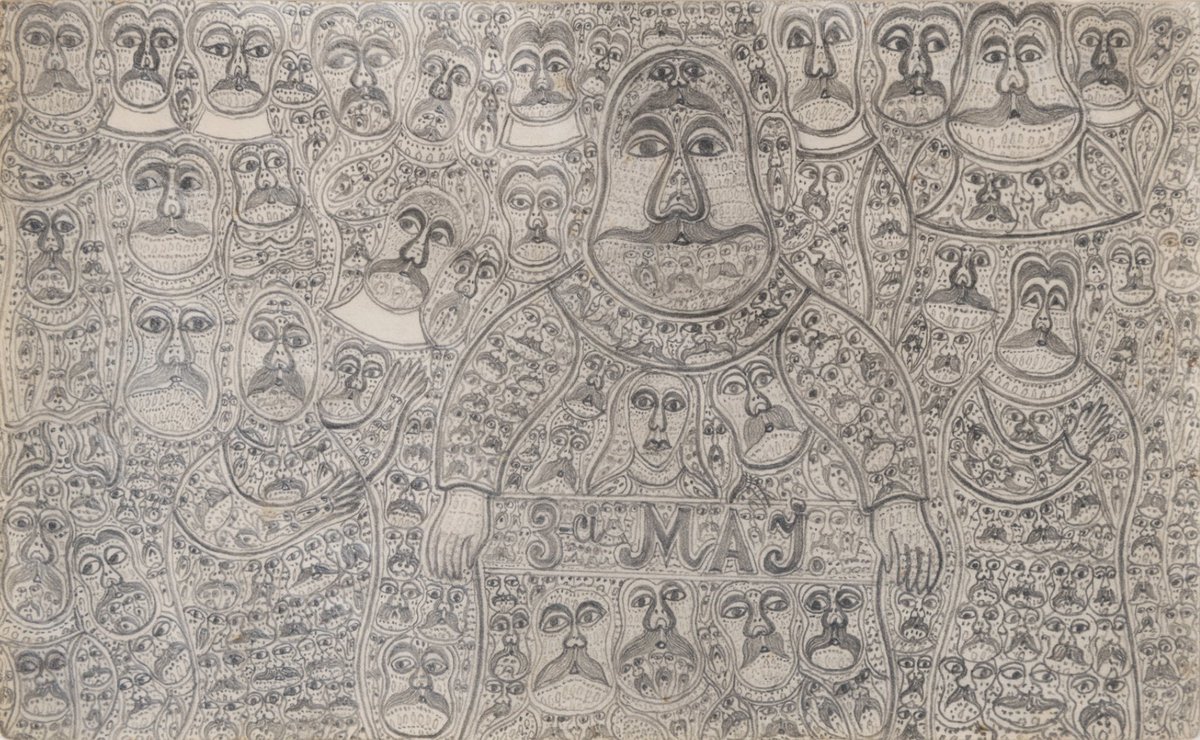 3-ci MAJ.